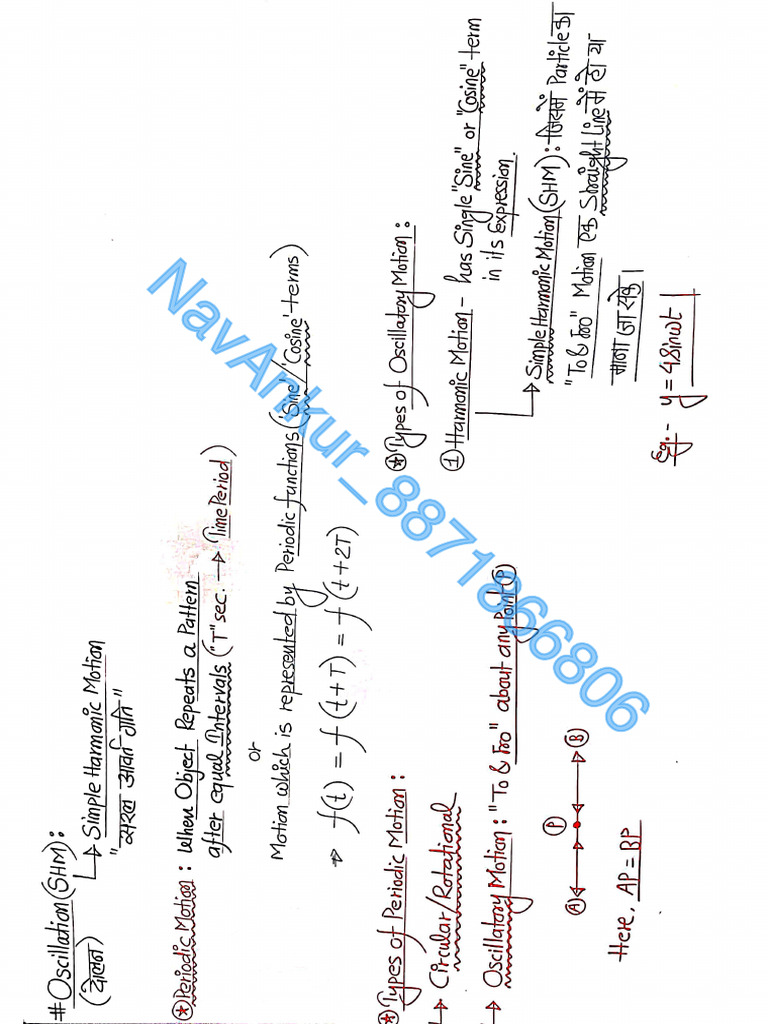 #Oscillation(SHM):
(दोलन) → Simple Harmonic Motion
"सरल आवर्त गति"
* Periodic Motion: When Object Repeats a Pattern
after equal Intervals ("T" sec. → Time Period)
or
Motion which is represented by Periodic functions ('Sine'/'Cosine'-terms)
⇒ f(t) = f(t+T) = f(t+2T)
* Types of Periodic Motion:
→ Circular/Rotational
→ Oscillatory Motion: "To & Fro" about any Point (P)
A P B
Here, AP = BP
* Types of Oscillatory Motion:
① Harmonic Motion - has Single "Sine" or "Cosine" term
in its Expression.
→ Simple Harmonic Motion (SHM): जिसमें Particle का
"To & Fro" Motion एक Straight Line में हो या
माना जा सके।
Eg. - y = 4Sinωt
NavAnkur_8871866806